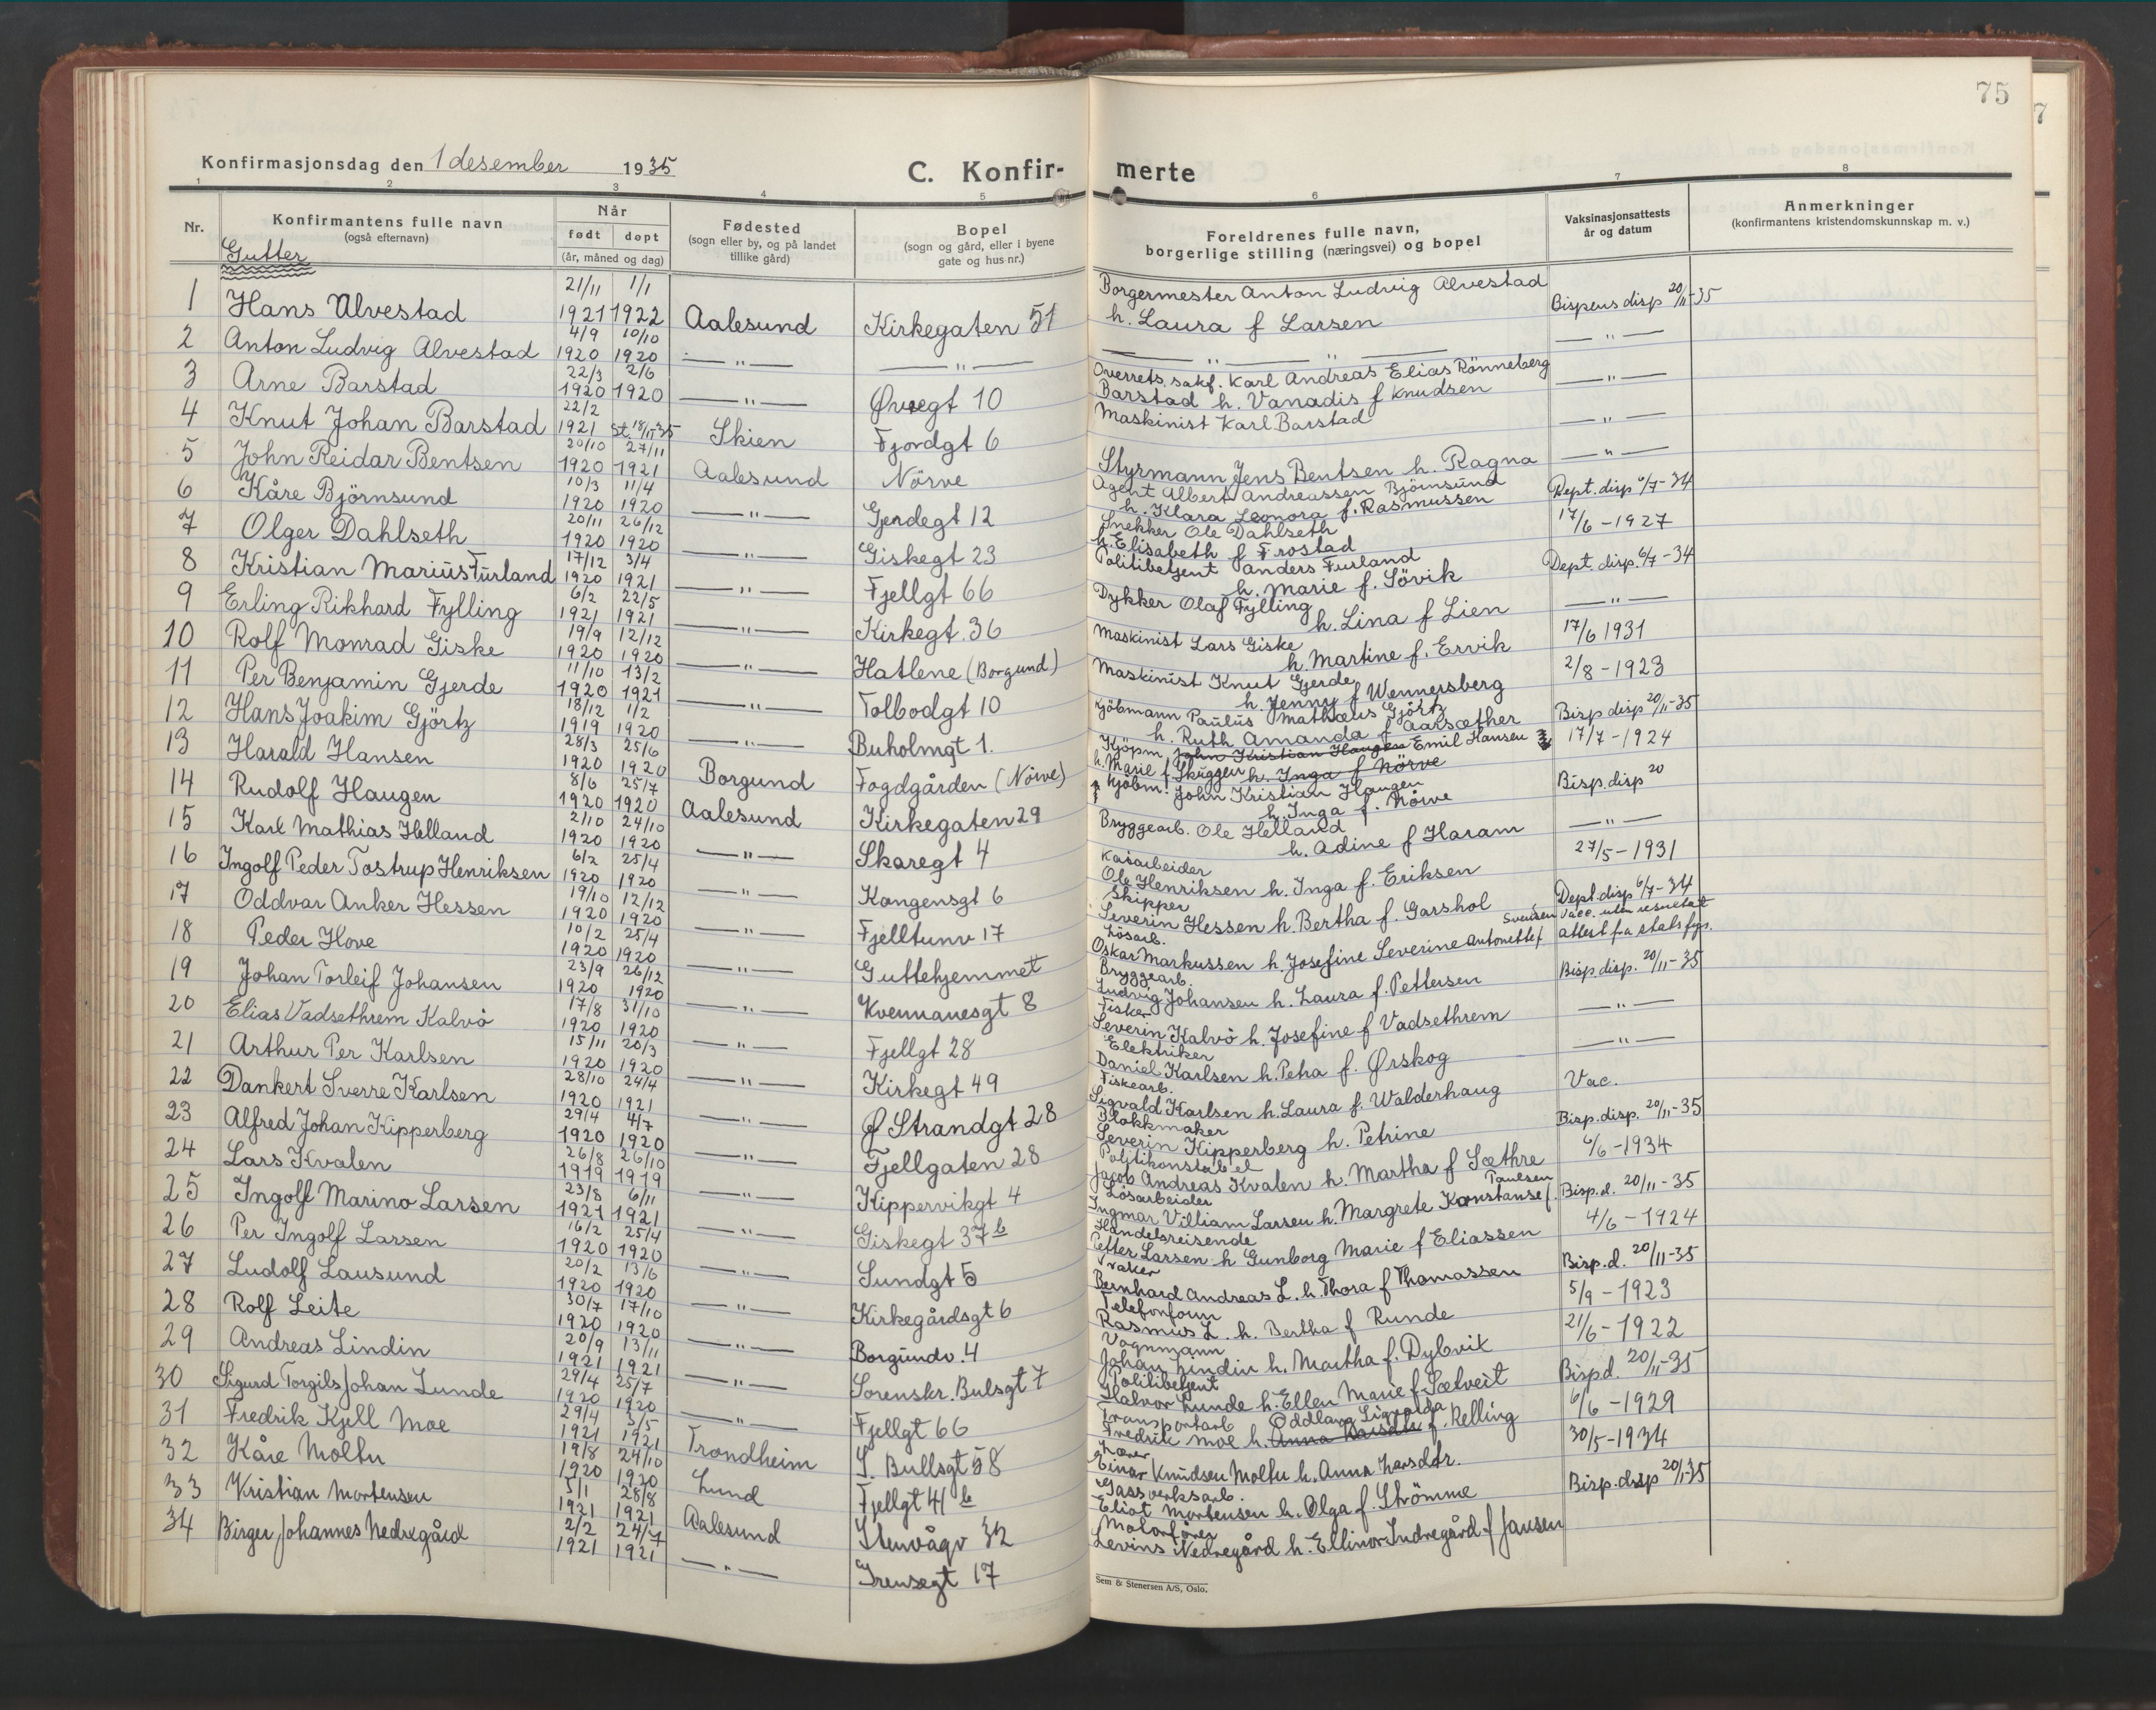 75
Konfirmasjonsdag den 1 desember 1935
C. Konfir-
merte
1 2 3 4 5 6 7 8
Nr.
Konfirmantens fulle navn
(også efternavn)
Når
født døpt
(år, måned og dag)
Fødested
(sogn eller by, og på landet
tillike gård)
Bopel
(sogn og gård, eller i byene
gate og hus nr.)
Foreldrenes fulle navn,
borgerlige stilling (næringsvei) og bopel
Vaksinasjonsattests
år og datum
Anmerkninger
(konfirmantens kristendomskunnskap m. v.)
Gutter
1 Hans Alvestad 21/11 1921 1/1 1922 Aalesund Kirkegaten 51 Borgermester Anton Ludvig Alvestad h. Laura f Larsen Bispens disp 20/11-35
2 Anton Ludvig Alvestad 4/9 1920 10/10 1920 —"— —"— —"— —"— —"—
3 Arne Barstad 22/3 1920 2/6 1920 —"— Øvregt 10 Overrets.sakf. Karl Andreas Elias Rönneberg Barstad h. Vanadis f Knudsen —"—
4 Knut Johan Barstad 22/2 1921 st. 18/11 35 Skien Fjordgt 6 Maskinist Karl Barstad —"—
5 John Reidar Bentsen 20/10 1920 27/11 1921 Aalesund Nörve Styrmann Jens Bentsen h. Ragna —"—
6 Kåre Björnsund 10/3 1920 11/4 1920 —"— Gjerdegt 12 Agent Albert Andreassen Björnsund h. Klara Leonora f. Rasmussen Dept. disp 6/7-34
7 Olger Dahlseth 20/11 1920 26/12 1920 —"— Giskegt 23 Snekker Ole Dahlseth h. Elisabeth f Frostad 17/6-1927
8 Kristian Marius Furland 17/12 1920 3/4 1921 —"— Fjellgt 66 Politibetjent Anders Furland h. Marie f. Sövik Dept. disp. 6/7-34
9 Erling Rikhard Fylling 6/2 1921 22/5 1921 —"— Kirkegt. 36 Dykker Olaf Fylling h. Lina f Lien —"—
10 Rolf Monrad Giske 19/9 1920 12/12 1920 —"— Hatlene (Borgund) Maskinist Lars Giske h. Martine f. Ervik 17/6 1931
11 Per Benjamin Gjerde 11/10 1920 13/2 1921 —"— Tolbodgt 10 Maskinist Knut Gjerde h. Jenny f Wennersberg 2/8-1923
12 Hans Joakim Gjörtz 18/12 1919 1/2 1920 —"— Buholmgt 1. Kjöbmann Paulus Mathæus Gjörtz h. Ruth Amanda f Aarsæther Bisp disp 20/11-35
13 Harald Hansen 28/3 1920 25/6 1920 Borgund Fogdgården (Nörve) Kjöpm. John Kristian Haugen Emil Hansen h. Marie f. Skuggen h. Inga f Nörve 17/7-1924
14 Rudolf Haugen 8/6 1920 25/7 1920 Aalesund Kirkegaten 29 Kjöbm. John Kristian Haugen h. Inga f. Nörve Bisp. disp 20
15 Karl Mathias Helland 2/10 1920 24/10 1920 —"— Skaregt 4 Bryggearb. Ole Helland h. Adine f Haram —"—
16 Ingolf Peder Tostrup Henriksen 6/2 1920 25/4 1920 —"— Kongensgt 6 Kaiarbeider Ole Henriksen h. Inga f. Eriksen 27/5-1931
17 Oddvar Anker Hessen 19/10 1920 12/12 1920 —"— Fjelltunv 17 Skipper Severin Hessen h. Bertha f. Garshol Dept. disp 6/7-34
18 Peder Hove 10/2 1920 25/4 1920 —"— Guttehjemmet Lösarb. Oskar Markussen h. Josefine Severine Antonette f Svensen Vacc. uten resultat attest fra stabsfys.
19 Johan Torleif Johansen 23/9 1920 26/12 1920 —"— Kvennanesgt 8 Bryggearb. Ludvig Johansen h. Laura f. Pettersen Bisp. disp. 20/11-35
20 Elias Vadsethrem Kalvö 17/8 1920 31/10 1920 —"— Fjellgt 28 Fisker Severin Kalvö h. Josefine f Vadsethrem —"—
21 Arthur Per Karlsen 15/11 1920 20/3 1920 —"— Kirkegt 49 Elektriker Daniel Karlsen h. Petra f. Ørskog —"—
22 Dankert Sverre Karlsen 28/10 1920 24/4 1921 —"— Ø Strandgt 28 Fiskearb. Sigvald Karlsen h. Laura f. Walderhaug Vac.
23 Alfred Johan Kipperberg 29/4 1920 4/7 1920 —"— Fjellgaten 28 Blokkmaker Severin Kipperberg h. Petrine Bisp. disp. 20/11-35
24 Lars Kvalen 26/8 1919 26/10 1919 —"— Kippervikgt 4 Politikonstabel Jacob Andreas Kvalen h. Martha f Sæthre 6/6-1934
25 Ingolf Marino Larsen 23/8 1921 6/11 1921 —"— Giskegt 37 b Lösarbeider Ingmar Villiam Larsen h. Margrete Konstanse f. Paulsen Bisp. d. 20/11-35
26 Per Ingolf Larsen 16/2 1920 25/4 1920 —"— Sundgt 5 Handelsreisende Petter Larsen h Gunborg Marie f Eliassen 4/6-1924
27 Ludolf Lausund 20/2 1920 13/6 1920 —"— Kirkegårdsgt 6 Vraker Bernhard Andreas L. h. Thora f Thomassen Bisp. d. 20/11-35
28 Rolf Leite 30/7 1920 17/10 1920 —"— Borgundv. 4 Telefonform Rasmus L. h. Bertha f Runde 5/9-1923
29 Andreas Lindin 20/9 1921 13/11 1921 —"— Sorenskr. Bulsgt 7 Vognmann Johan Lindin h. Martha f. Dybvik 21/6-1922
30 Sigurd Torgils Johan Lunde 29/4 1920 25/7 1920 —"— Fjellgt 66 Politibetjent Halvor Lunde h. Ellen Marie f. Sætveit Bisp d. 20/11-35
31 Fredrik Kjell Moe 29/4 1921 3/5 1921 Trondheim S. Bullsgt 58 Transportarb Fredrik Moe h. Oddlaug Ligvarda f. Relling 6/6-1929
32 Kåre Moltu 19/8 1920 24/10 1920 Lund Fjellgt 41 b Lærer Einar Knudsen Moltu h. Anna Larsdtr. 30/5-1934
33 Kristian Mortensen 5/1 1921 28/8 1921 Aalesund Stenvågv 32 Gassverksarb. Eliot Mortensen h. Olga f. Strömme Bisp. disp 20/11-35
34 Birger Johannes Nedregård 2/2 1921 24/7 1921 —"— Grensegt 17 Motorförer Levins Nedregård h. Ellinor Indregård f Jansen
Sem & Stenersen A/S, Oslo.